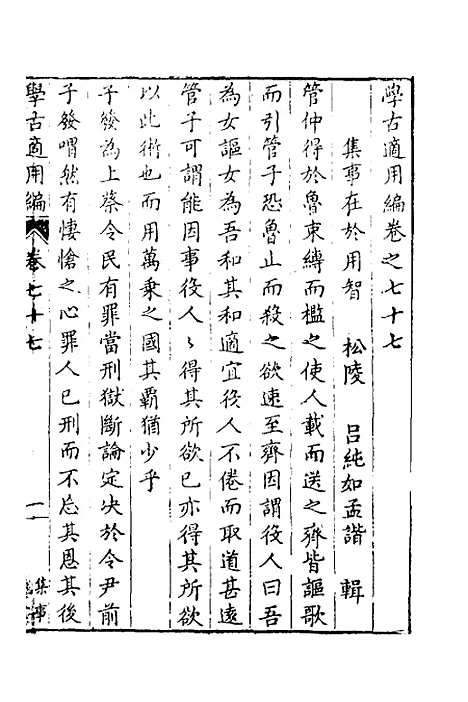 學古適用編卷之七十七
集事在於用智　松陵　呂純如孟諧　輯
管仲得於魯束縛而檻之使人載而送之齊皆謳歌
而引管子恐魯止而殺之欲速至齊因謂役人曰吾
為女謳女為吾和其和適宜役人不倦而取道甚遠
管子可謂能因事役人〻得其所欲已亦得其所欲
以此術也而用萬乘之國其霸猶少乎
子發為上蔡令民有罪當刑獄斷論定决於令尹前
子發喟然有悽愴之心罪人已刑而不忘其恩其後
學古適用編
卷七十七
一
集事